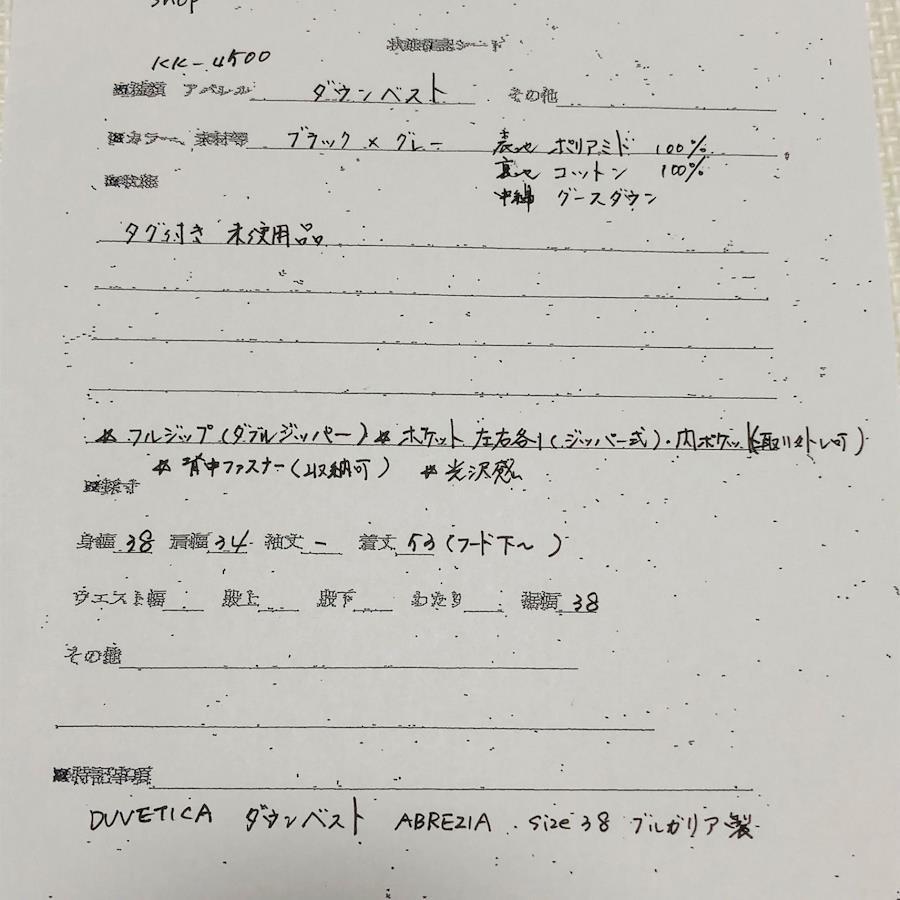 shop
KK-4500
状態確認シート
■種類 アパレル ダウンベスト その他
■カラー、素材等 ブラック×グレー 表地 ポリアミド 100%
裏地 コットン 100%
■状態 中綿 グースダウン
タグ付き 未使用品
★ フルジップ(ダブルジッパー) ★ ポケット 左右各1(ジッパー式)・内ポケット(取り外し可)
★ 背中ファスナー(収納可) ★ 光沢感
■採寸
身幅 38 肩幅 34 袖丈 - 着丈 53 (フード下~)
ウエスト幅 股上 股下 わたり 裾幅 38
その他
■特記事項
DUVETICA ダウンベスト ABREZIA . size 38 ブルガリア製